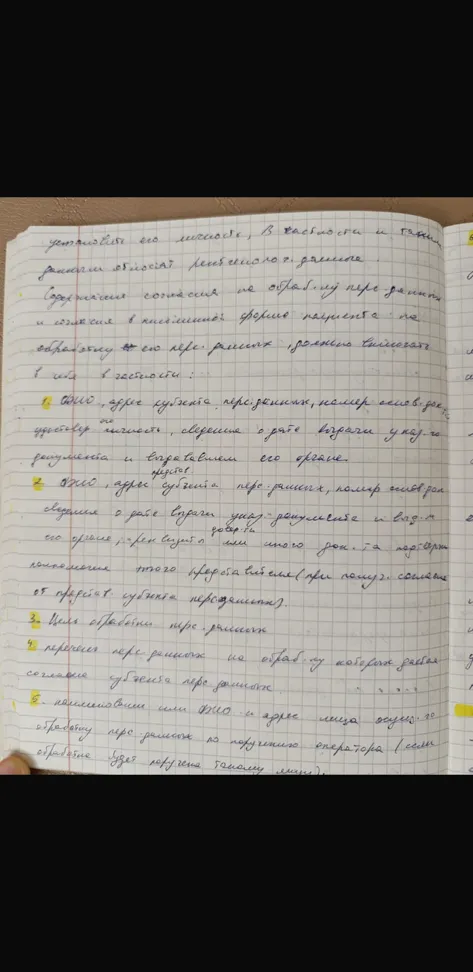 установить его личность, в частности и таким
данным относят рентгенолог. данные.
Содержание согласия на обраб-ку перс. данных
и согласия в письменной форме пациента на
обработку его перс. данных, должно включать
в себя в частности:
1. ФИО, адрес субъекта перс. данных, номер основ. док-та
удостовер-го личность, сведения о дате выдачи указ-го
документа и выдавшем его органе.
2. ФИО, адрес представ. субъекта перс. данных, номер основ. док
сведения о дате выдачи указ-документа и выд-м
его органе, реквизиты довер-ти или иного док-та подтверж
полномочия этого представителя (при получ. согласия
от представ. субъекта перс данных).
3. Цель обработки перс. данных
4. перечень перс. данных на обраб-ку которых дается
согласие субъекта перс данных.
5. наименование или ФИО и адрес лица осущ-го
обработку перс. данных по поручению оператора (если
обработка будет поручена такому лицу).